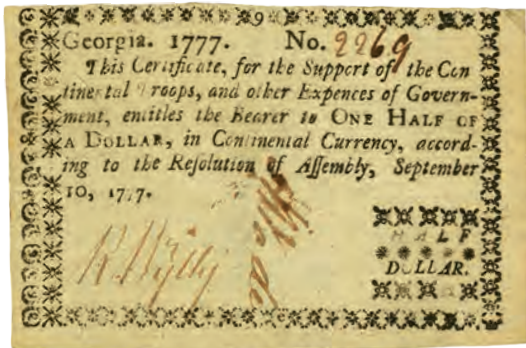 Georgia. 1777. No. 2269
This Certificate, for the Support of the Con
tinental Troops, and other Expences of Govern-
ment, entitles the Bearer to ONE HALF OF
A DOLLAR, in Continental Currency, accord-
ing to the Resolution of Assembly, September
10, 1777.
HALF
DOLLAR.
R. Wylly